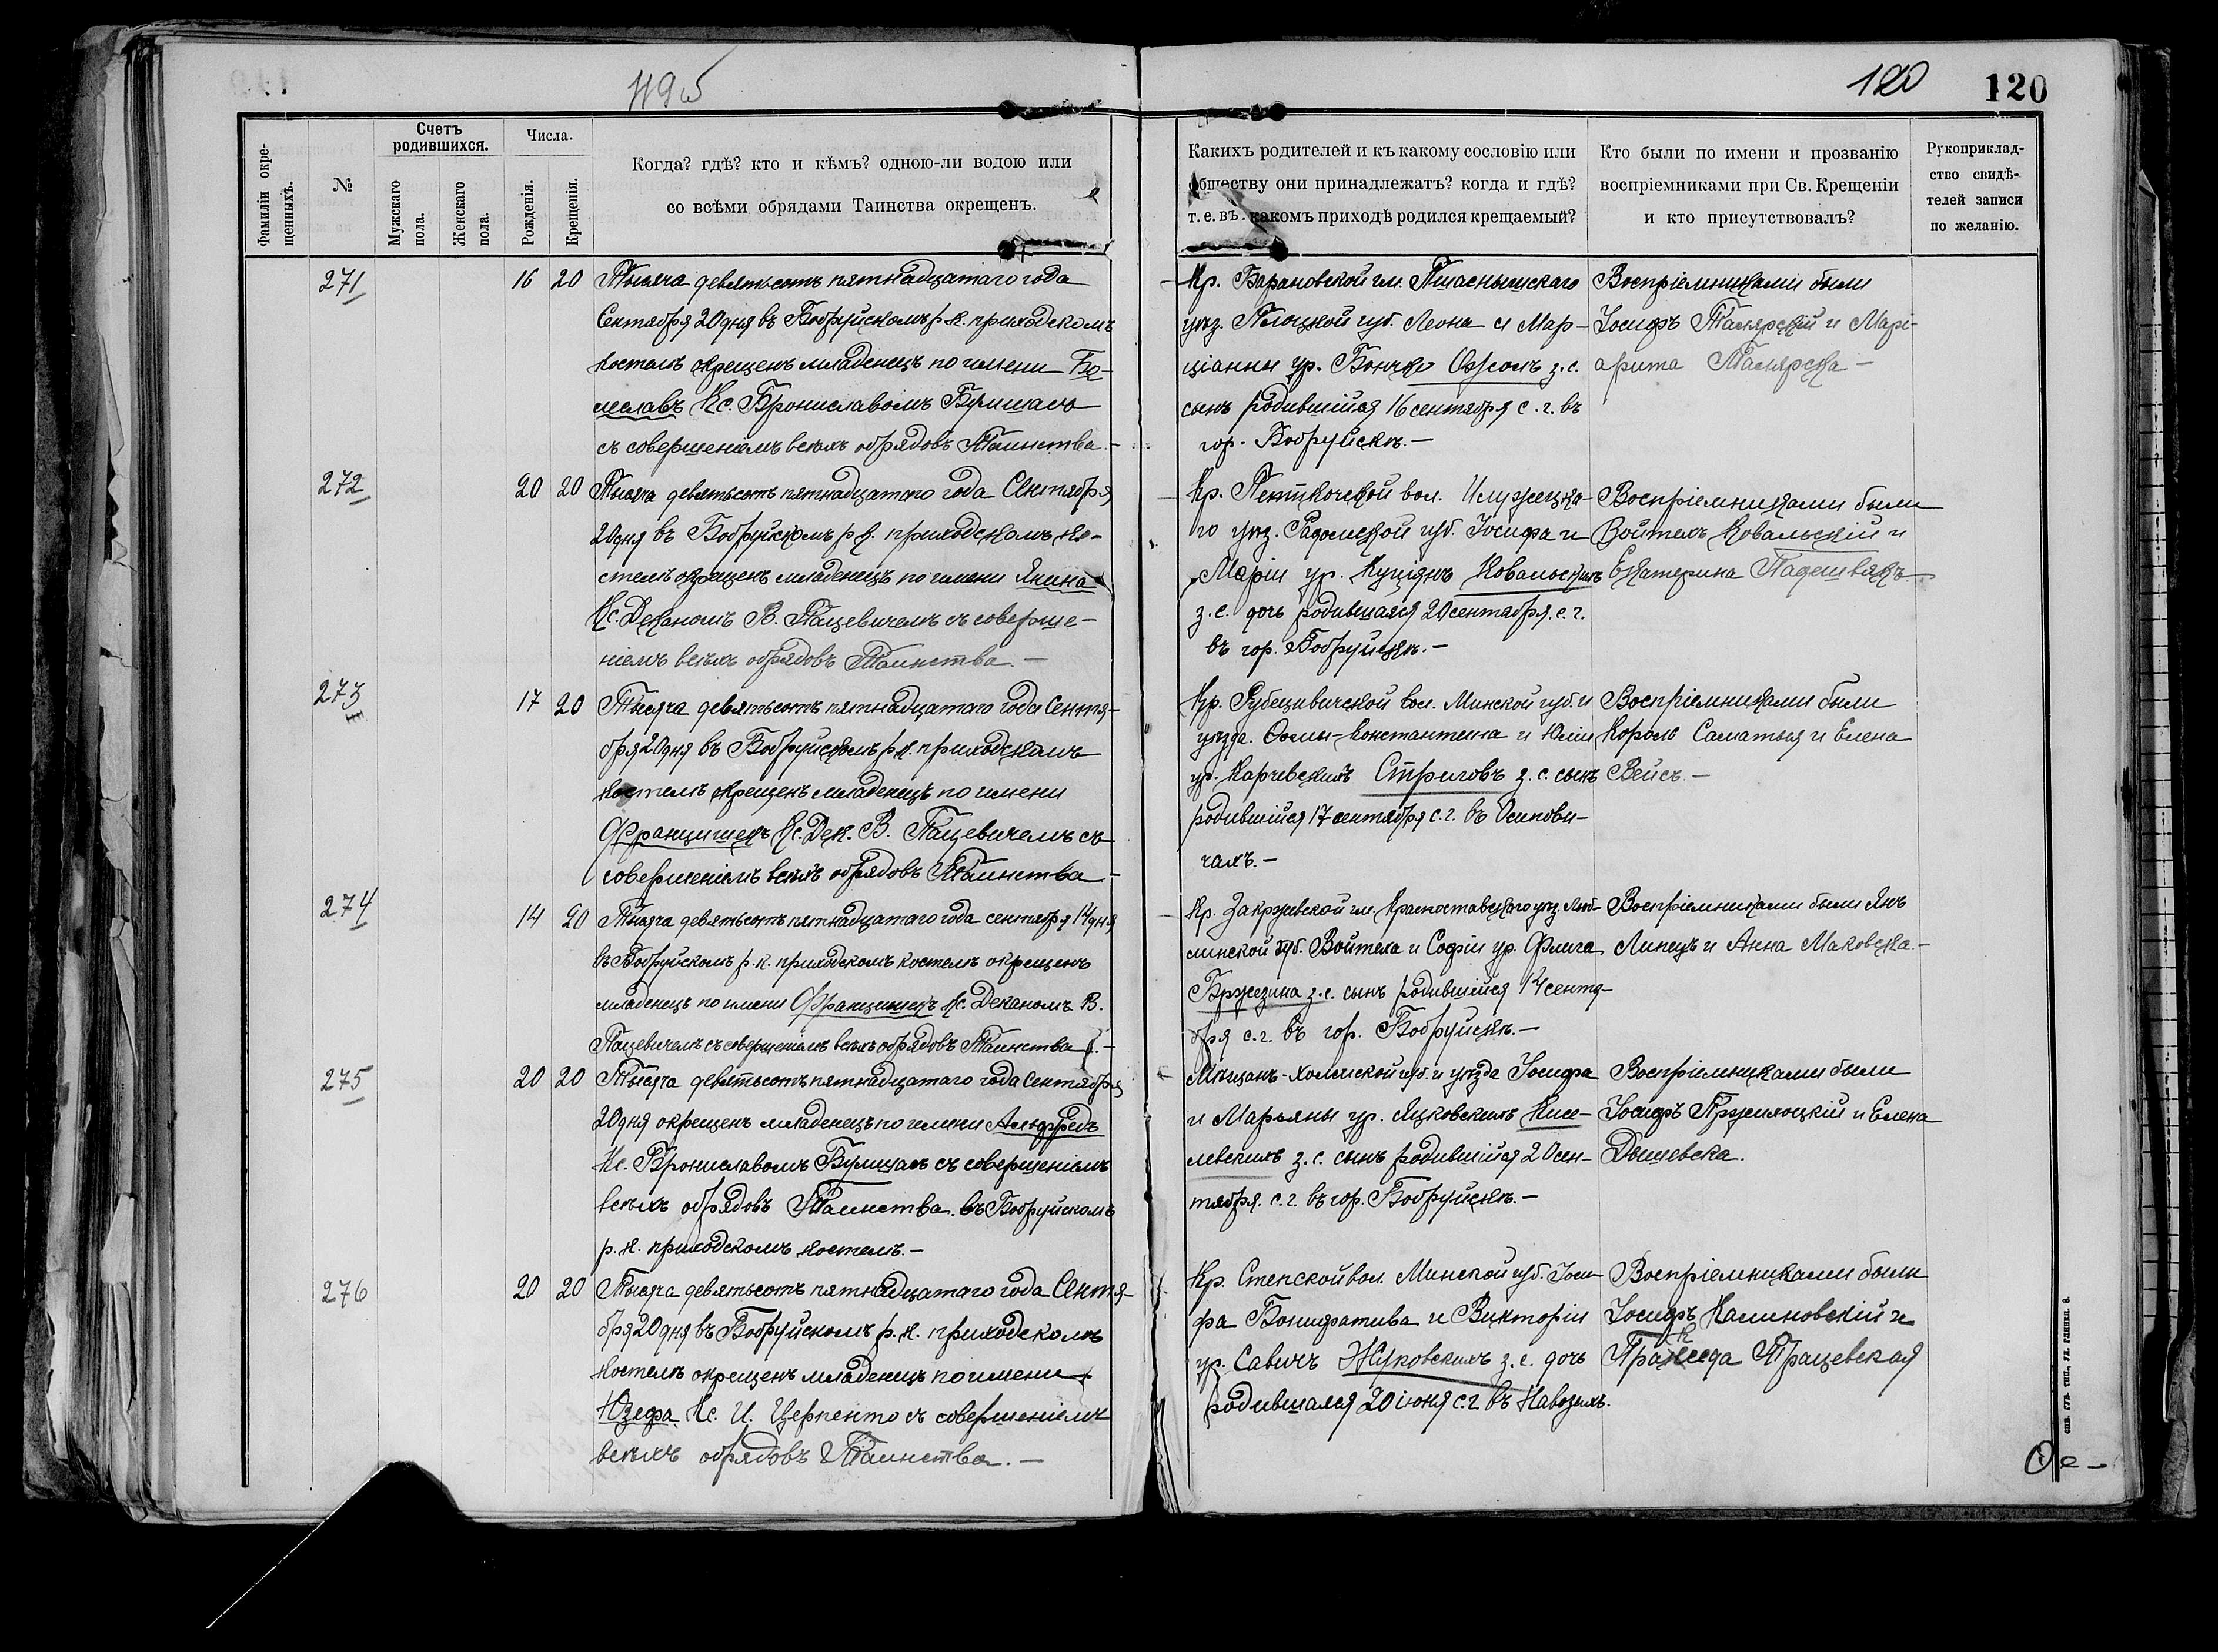 119б
120
120
Фамиліи окре-
щенныхъ.
№
Счетъ
родившихся.
Мужскаго
пола.
Женскаго
пола.
Числа.
Рожденія.
Крещенія.
Когда? гдѣ? кто и кѣмъ? одною-ли водою или
со всѣми обрядами Таинства окрещенъ.
Какихъ родителей и къ какому сословію или
обществу они принадлежатъ? когда и гдѣ?
т. е. въ какомъ приходѣ родился крещаемый?
Кто были по имени и прозванію
воспріемниками при Св. Крещеніи
и кто присутствовалъ?
Рукоприклад-
ство свидѣ-
телей записи
по желанію.
271
16 20
Тысяча девятьсотъ пятнадцатаго года
Сентября 20 дня въ Бобруйскомъ р. к. приходскомъ
костелѣ окрещенъ младенецъ по имени Бо-
леславъ Кс. Брониславомъ
съ совершеніемъ всѣхъ обрядовъ Таинства. -
Кр. Барановской гм. Пшаснышскаго
уѣз. Плоцкой губ. Леона и Мар-
ціанны ур. з. с.
сынъ родившійся 16 сентября с. г. въ
гор. Бобруйскѣ. -
Воспріемниками были
Іосифъ и Марг-
арита
272
20 20
Тысяча девятьсотъ пятнадцатаго года Сентября
20 дня въ Бобруйскомъ р. к. приходскомъ ко-
стелѣ окрещенъ младенецъ по имени Янина
Кс. Деканомъ В. Пацевичемъ съ соверше-
ніемъ всѣхъ обрядовъ Таинства. -
Кр. Петкочской вол. Илжецка-
го уѣз. Радомской губ. Іосифа и
Маріи ур. Ковальскихъ
з. с. дочь родившаяся 20 сентября. с. г.
въ гор. Бобруйскѣ. -
Воспріемниками были
Войтехъ Ковальскій и
Екатерина
273
17 20
Тысяча девятьсотъ пятнадцатаго года Сентя-
бря 20 дня въ Бобруйскомъ р. к. приходскомъ
костелѣ окрещенъ младенецъ по имени
Францишекъ Кс. Дек. В. Пацевичемъ съ
совершеніемъ всѣхъ обрядовъ Таинства -
Кр. Рубежевичской вол. Минской губ. и
уѣзда. Ѳомы-Константина и Юліи
ур. Карчевскихъ з. с. сынъ
родившійся 17 сентября с. г. въ Осипови-
чахъ. -
Воспріемниками были
Король и Елена
Вейсъ. -
274
14 20
Тысяча девятьсотъ пятнадцатаго года сентября 14 дня
въ Бобруйскомъ р. к. приходскомъ костелѣ окрещенъ
младенецъ по имени Францишекъ Кс. Деканомъ В.
Пацевичемъ съ совершеніемъ всѣхъ обрядовъ Таинства. -
Кр. Закржевской гм. Красноставскаго уѣз. Люб-
линской губ. Войтеха и Софіи ур. Флига
Бржезина з. с. сынъ родившійся 14 сентя-
бря с. г. въ гор. Бобруйскѣ. -
Воспріемниками были Янъ
Липецъ и Анна Маковска. -
275
20 20
Тысяча девятьсотъ пятнадцатаго года Сентября
20 дня окрещенъ младенецъ по имени Альфредъ
Кс. Брониславомъ съ совершеніемъ
всѣхъ обрядовъ Таинства. въ Бобруйскомъ
р. к. приходскомъ костелѣ. -
Мѣщанъ-Холмской губ. и уѣзда Іосифа
и Марьяны ур. Яцковскихъ Кисе-
левскихъ з. с. сынъ родившійся 20 сен-
тября. с. г. въ гор. Бобруйскѣ. -
Воспріемниками были
Іосифъ и Елена
Дышевска.
276
20 20
Тысяча девятьсотъ пятнадцатаго года Сентя-
бря 20 дня въ Бобруйскомъ р. к. приходскомъ
костелѣ окрещенъ младенецъ по имени
Юзефа Кс. И. Церпенто съ совершеніемъ
всѣхъ обрядовъ Таинства. -
Кр. Степской вол. Минской губ. Іоси-
фа Бонифатива и Викторіи
ур. Савичъ Жуковскихъ з. с. дочь
родившаяся 20 іюня с. г. въ
Воспріемниками были
Іосифъ Калиновскій и
Пракседа